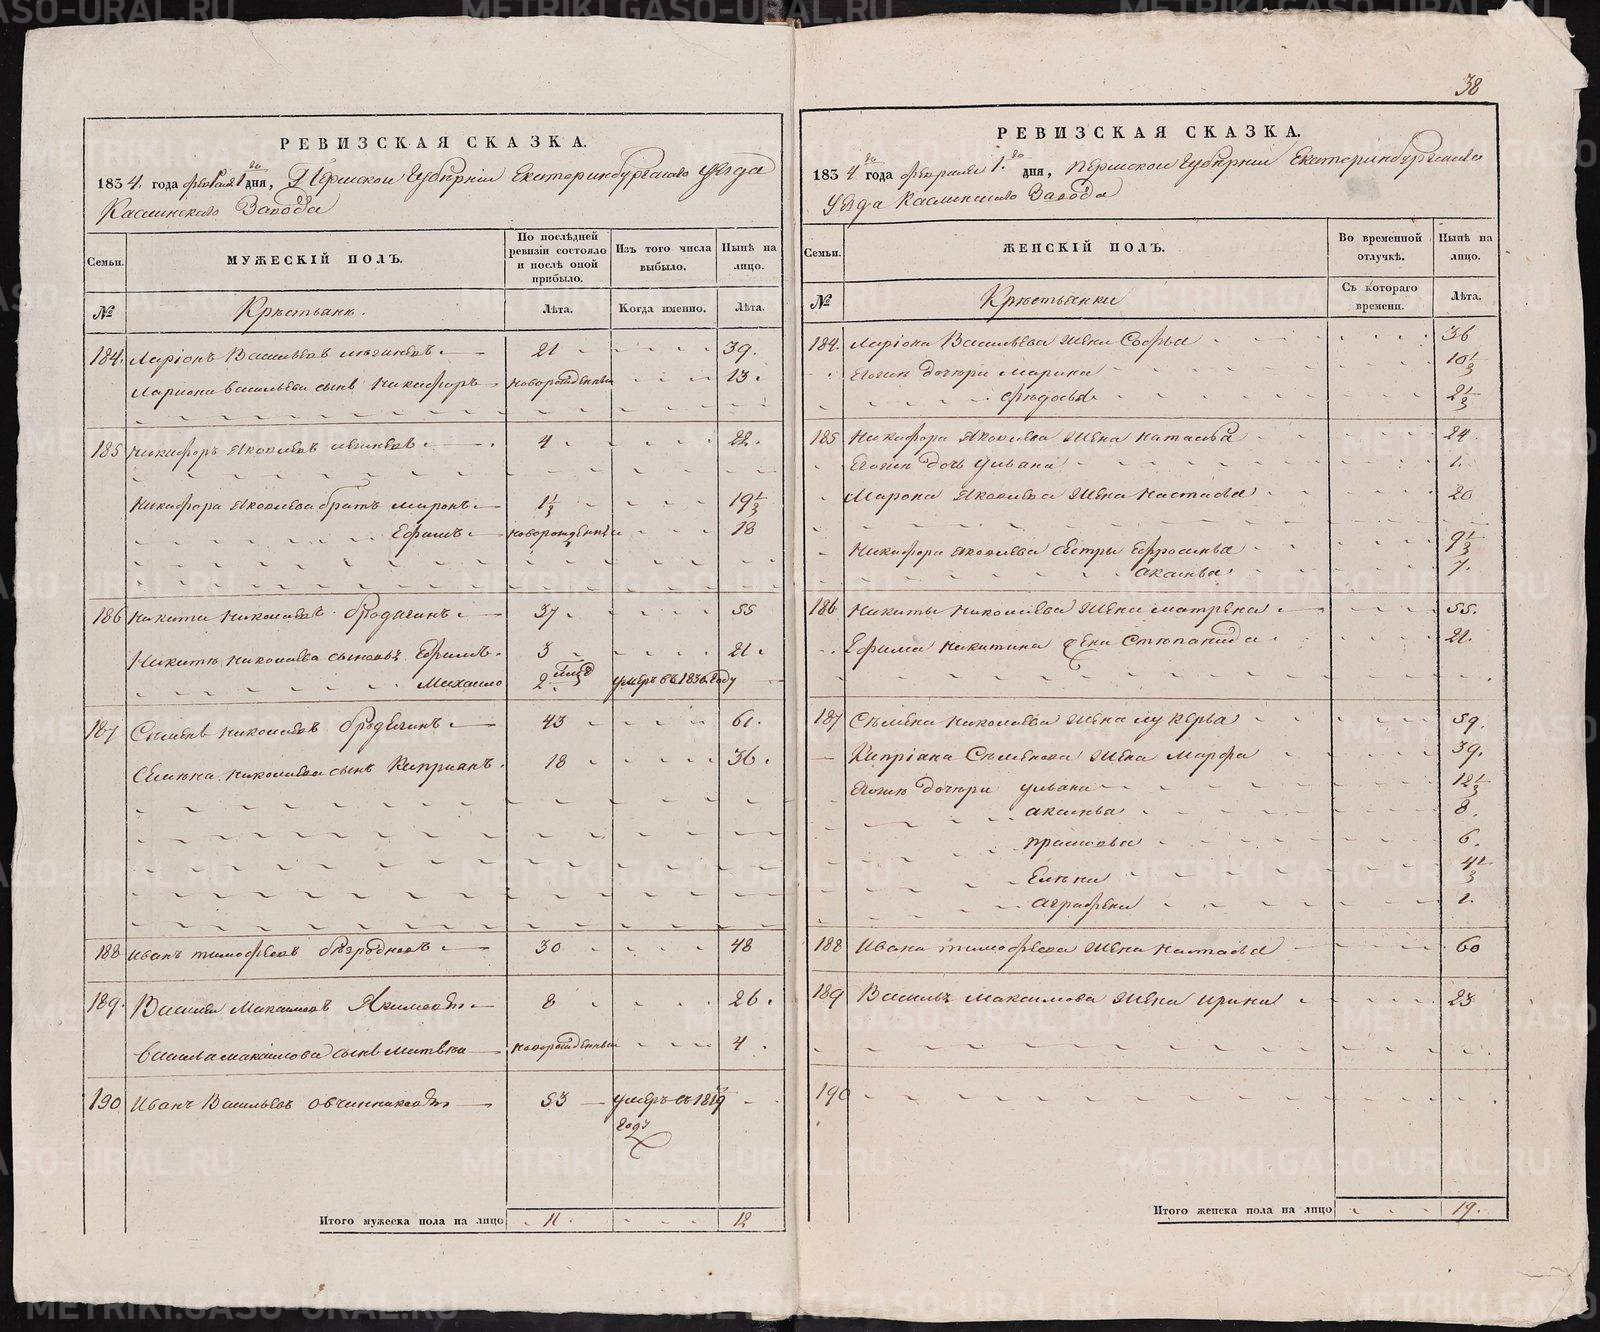 38
РЕВИЗСКАЯ СКАЗКА.
1834. года февраля 1 го дня, Пермской Губерніи Екатеринбургскаго уѣзда
Каслинскаго Завода
Семьи.
МУЖЕСКІЙ ПОЛЪ.
По послѣдней ревизіи состояло и послѣ оной прибыло.
Изъ того числа выбыло.
Нынѣ на лицо.
№
Крестьянѣ.
Лѣта.
Когда именно.
Лѣта.
184. Ларіонъ Васильевъ 21 39.
Лариона васильева сынъ Никифоръ новорожденный 13.
185 Никифоръ Яковлевъ 4 22.
Никифора Яковлева братъ миронъ 1 1/3 19 1/3
Ефимъ новорожденный 18
186 Никита Николаевъ бродягинъ 37 55
Никиты николаева сыновья Ефимъ. 3 21.
Михайло 2 умеръ въ 183 году
187 Семенъ Николаевъ бродягинъ 43 61.
Семена николаева сынъ Киприянъ. 18 36.
188 Иванъ тимофеевъ 30 48
189. Василей Макаимовъ Якимовъ 8 26.
василья макаимова сынъ матвей новорожденный 4.
190 Иванъ Васильевъ овчинниковъ 53 умеръ въ 1819
году
Итого мужеска пола на лицо 11. 12
РЕВИЗСКАЯ СКАЗКА.
1834 го года февраля 1. го дня, Пермской Губерніи Екатеринбургскаго
Уѣзда Каслинскаго Завода
Семьи.
ЖЕНСКІЙ ПОЛЪ.
Во временной отлучкѣ.
Нынѣ на лицо.
№
Крестьянки
Съ котораго времени.
Лѣта.
184. Ларіона Васильева жена Софья 36
Егожъ дочери Марина 10 1/3
федосья 2 1/3
185 Никифора Яковлева жена наталья 24.
Егожъ дочь ульяна 1.
Мирона Яковлева жена настасья 20
Никифора яковлева сестры Ефросинья 9 1/3
аксинья 7.
186 Никиты николаева жена матрена 55.
Ефима никитина жена Степанида 21.
187 Семена николаева жена лукерья 59.
Кипріана Семенова жена Марфа 39.
Егожъ дочери ульяна 12 1/3
аксинья 8.
прасковья 6.
Елена 4 1/3
аграфена 1.
188 Ивана тимофеева жена настасья 60
189 Василья максимова жена ирина 23
190
Итого женска пола на лицо 19.
METRIKI.GASO-URAL.RU